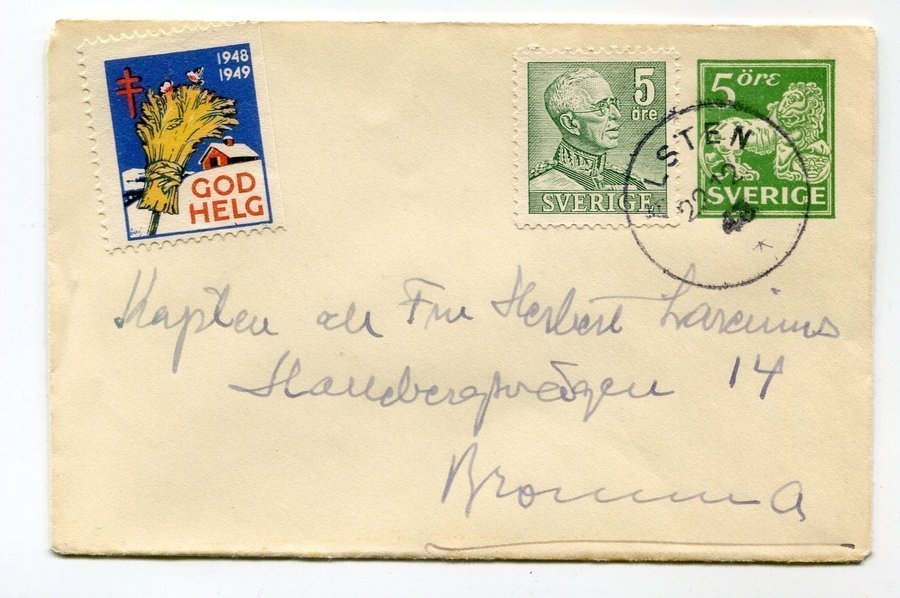 1948
1949
GOD
HELG
5
öre
SVERIGE
5 öre
SVERIGE
LSTEN
Kapten och Fru Herbert
14
Bromma